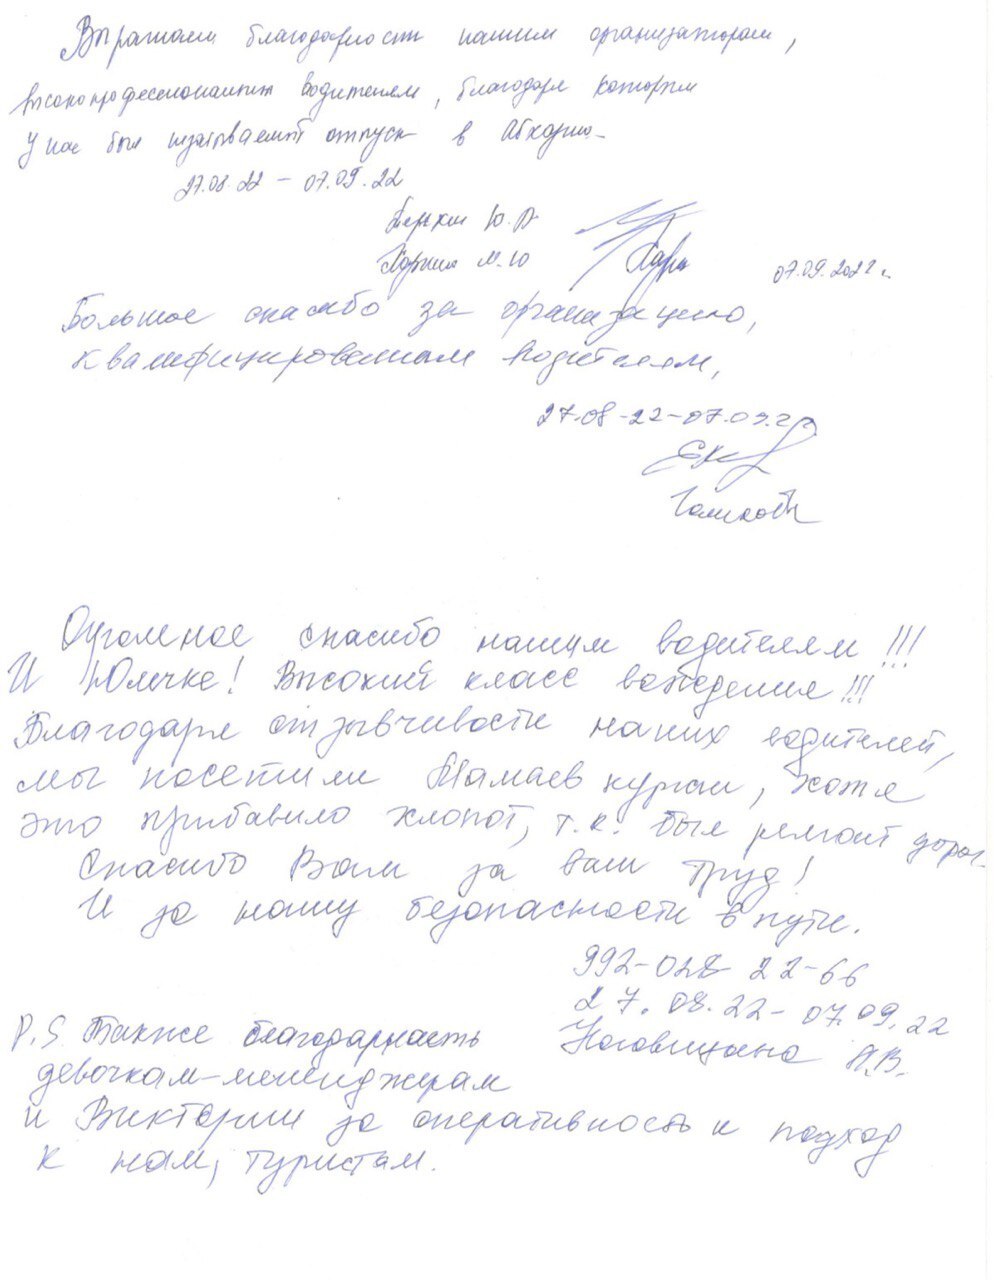 Выражаем благодарность нашим организаторам,
высокопрофессиональным водителям, благодаря которым
у нас был незабываемый отпуск в Абхазию
27.08.22 – 07.09.22
Ю.
М.Ю
07.09.2022 г.
Большое спасибо за организацию,
квалифицированным водителям,
27.08-22-07.09.22
Голикова
Огромное спасибо нашим водителям!!!
И Юлечке! Высокий класс вождения!!!
Благодаря отзывчивости наших водителей,
мы посетили Мамаев курган, хотя
это прибавило хлопот, т.к. был ремонт дорог.
Спасибо Вам за ваш труд!
И за нашу безопасность в пути.
992-028 22-66
27.08.22-07.09.22
Ноговицина А.В.
P.S Также благодарность
девочкам-менеджерам
и Виктории за оперативность и подход
к нам, туристам.